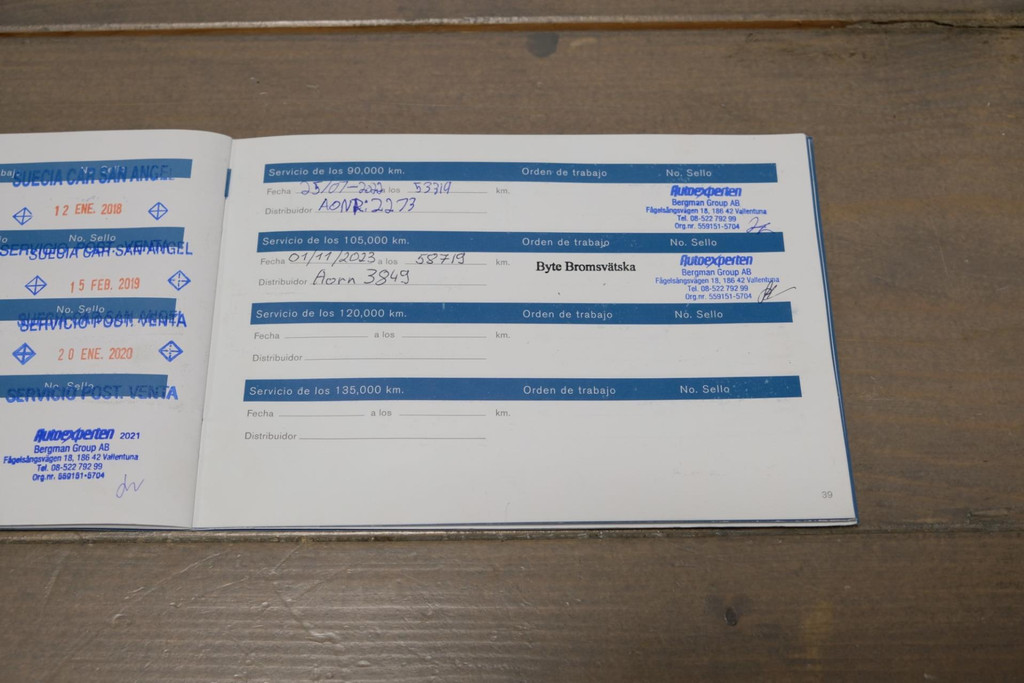 No. Sello
SUECIA CAR SAN ANGEL
12 ENE. 2018
No. Sello
SERVICIO POST. VENTA
SUECIA CAR SAN ANGEL
15 FEB. 2019
No. Sello
SERVICIO POST. VENTA
20 ENE. 2020
No. Sello
SERVICIO POST. VENTA
Autoexperten 2021
Bergman Group AB
Fågelsångsvägen 18, 186 42 Vallentuna
Tel. 08-522 792 99
Org.nr. 559151-5704
Servicio de los 90,000 km. Orden de trabajo No. Sello
Fecha 25/01-2022 a los 53319 km.
Distribuidor AONR: 2273
Autoexperten
Bergman Group AB
Fågelsångsvägen 18, 186 42 Vallentuna
Tel. 08-522 792 99
Org.nr. 559151-5704
Servicio de los 105,000 km. Orden de trabajo No. Sello
Fecha 01/11/2023 a los 58719 km.
Distribuidor Aorn 3849
Byte Bromsvätska
Autoexperten
Bergman Group AB
Fågelsångsvägen 18, 186 42 Vallentuna
Tel. 08-522 792 99
Org.nr. 559151-5704
Servicio de los 120,000 km. Orden de trabajo No. Sello
Fecha a los km.
Distribuidor
Servicio de los 135,000 km. Orden de trabajo No. Sello
Fecha a los km.
Distribuidor
39